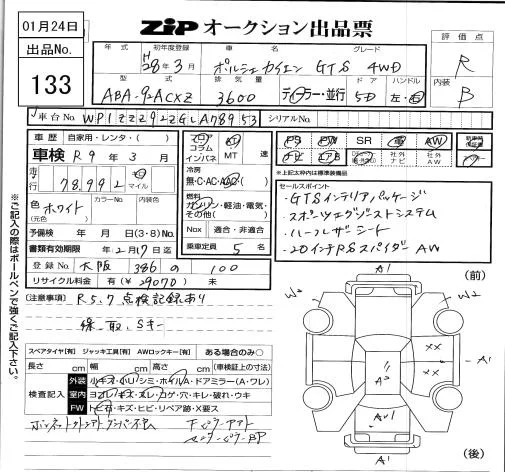 01月24日
ZiP オークション出品票
出品No.
133
評価点
R
内装
B
年式 初年度登録 車名 グレード
H28年3月 ポルシェ カイエン GTS 4WD
型式 排気量 ドア ハンドル
ABA-92ACXZ 3600 ディーラー・並行 5D 左・右
車台No. WP1ZZZ92ZGLA78953 シリアルNo.
車歴 自家用・レンタ・( )
車検 R9年3月
走行 78,992 マイル
色 ホワイト カラーNo. 内装色
(元色)
予備検 年 月 日(3・8)No.
書類有効期限 年2月17日迄
登録No. 大阪 386 の 100
リサイクル料金 有(¥29070) 未
フロア
コラム
インパネ
AT
MT 速
冷房
無・C・AC・AAC( )
燃料
ガソリン・軽油・電気・
その他( )
Nox 適合・非適合
乗車定員 5 名
PS PW SR 革 AW
ナビ エアB 社外ナビ 社外AW
*上記太枠内は標準装備品
セールスポイント
・GTSインテリアパッケージ
・スポーツエグゾーストシステム
・ハーフレザーシート
・20インチRSスパイダーAW
[注意事項] R5.7点検記録あり
保、取、Sキー
スペアタイヤ[有] ジャッキ工具[有] AWロックキー[有] ある場合のみ○
長さ cm 幅 cm 高さ cm (車検証上の寸法)
検査記入
外装 小キズ・小凹・シミ・ホイルA・ドアミラー(A・ワレ)
室内 ヨゴレ・キズ・スレ・コゲ・穴・キレ・破れ・ウキ
FW トビ石・キズ・ヒビ・リペア跡・X要ス
※ご記入の際はボールペンで強くご記入下さい。
(前)
A1
W2
W2
A1
××
××
A2
A1
A1
(後)